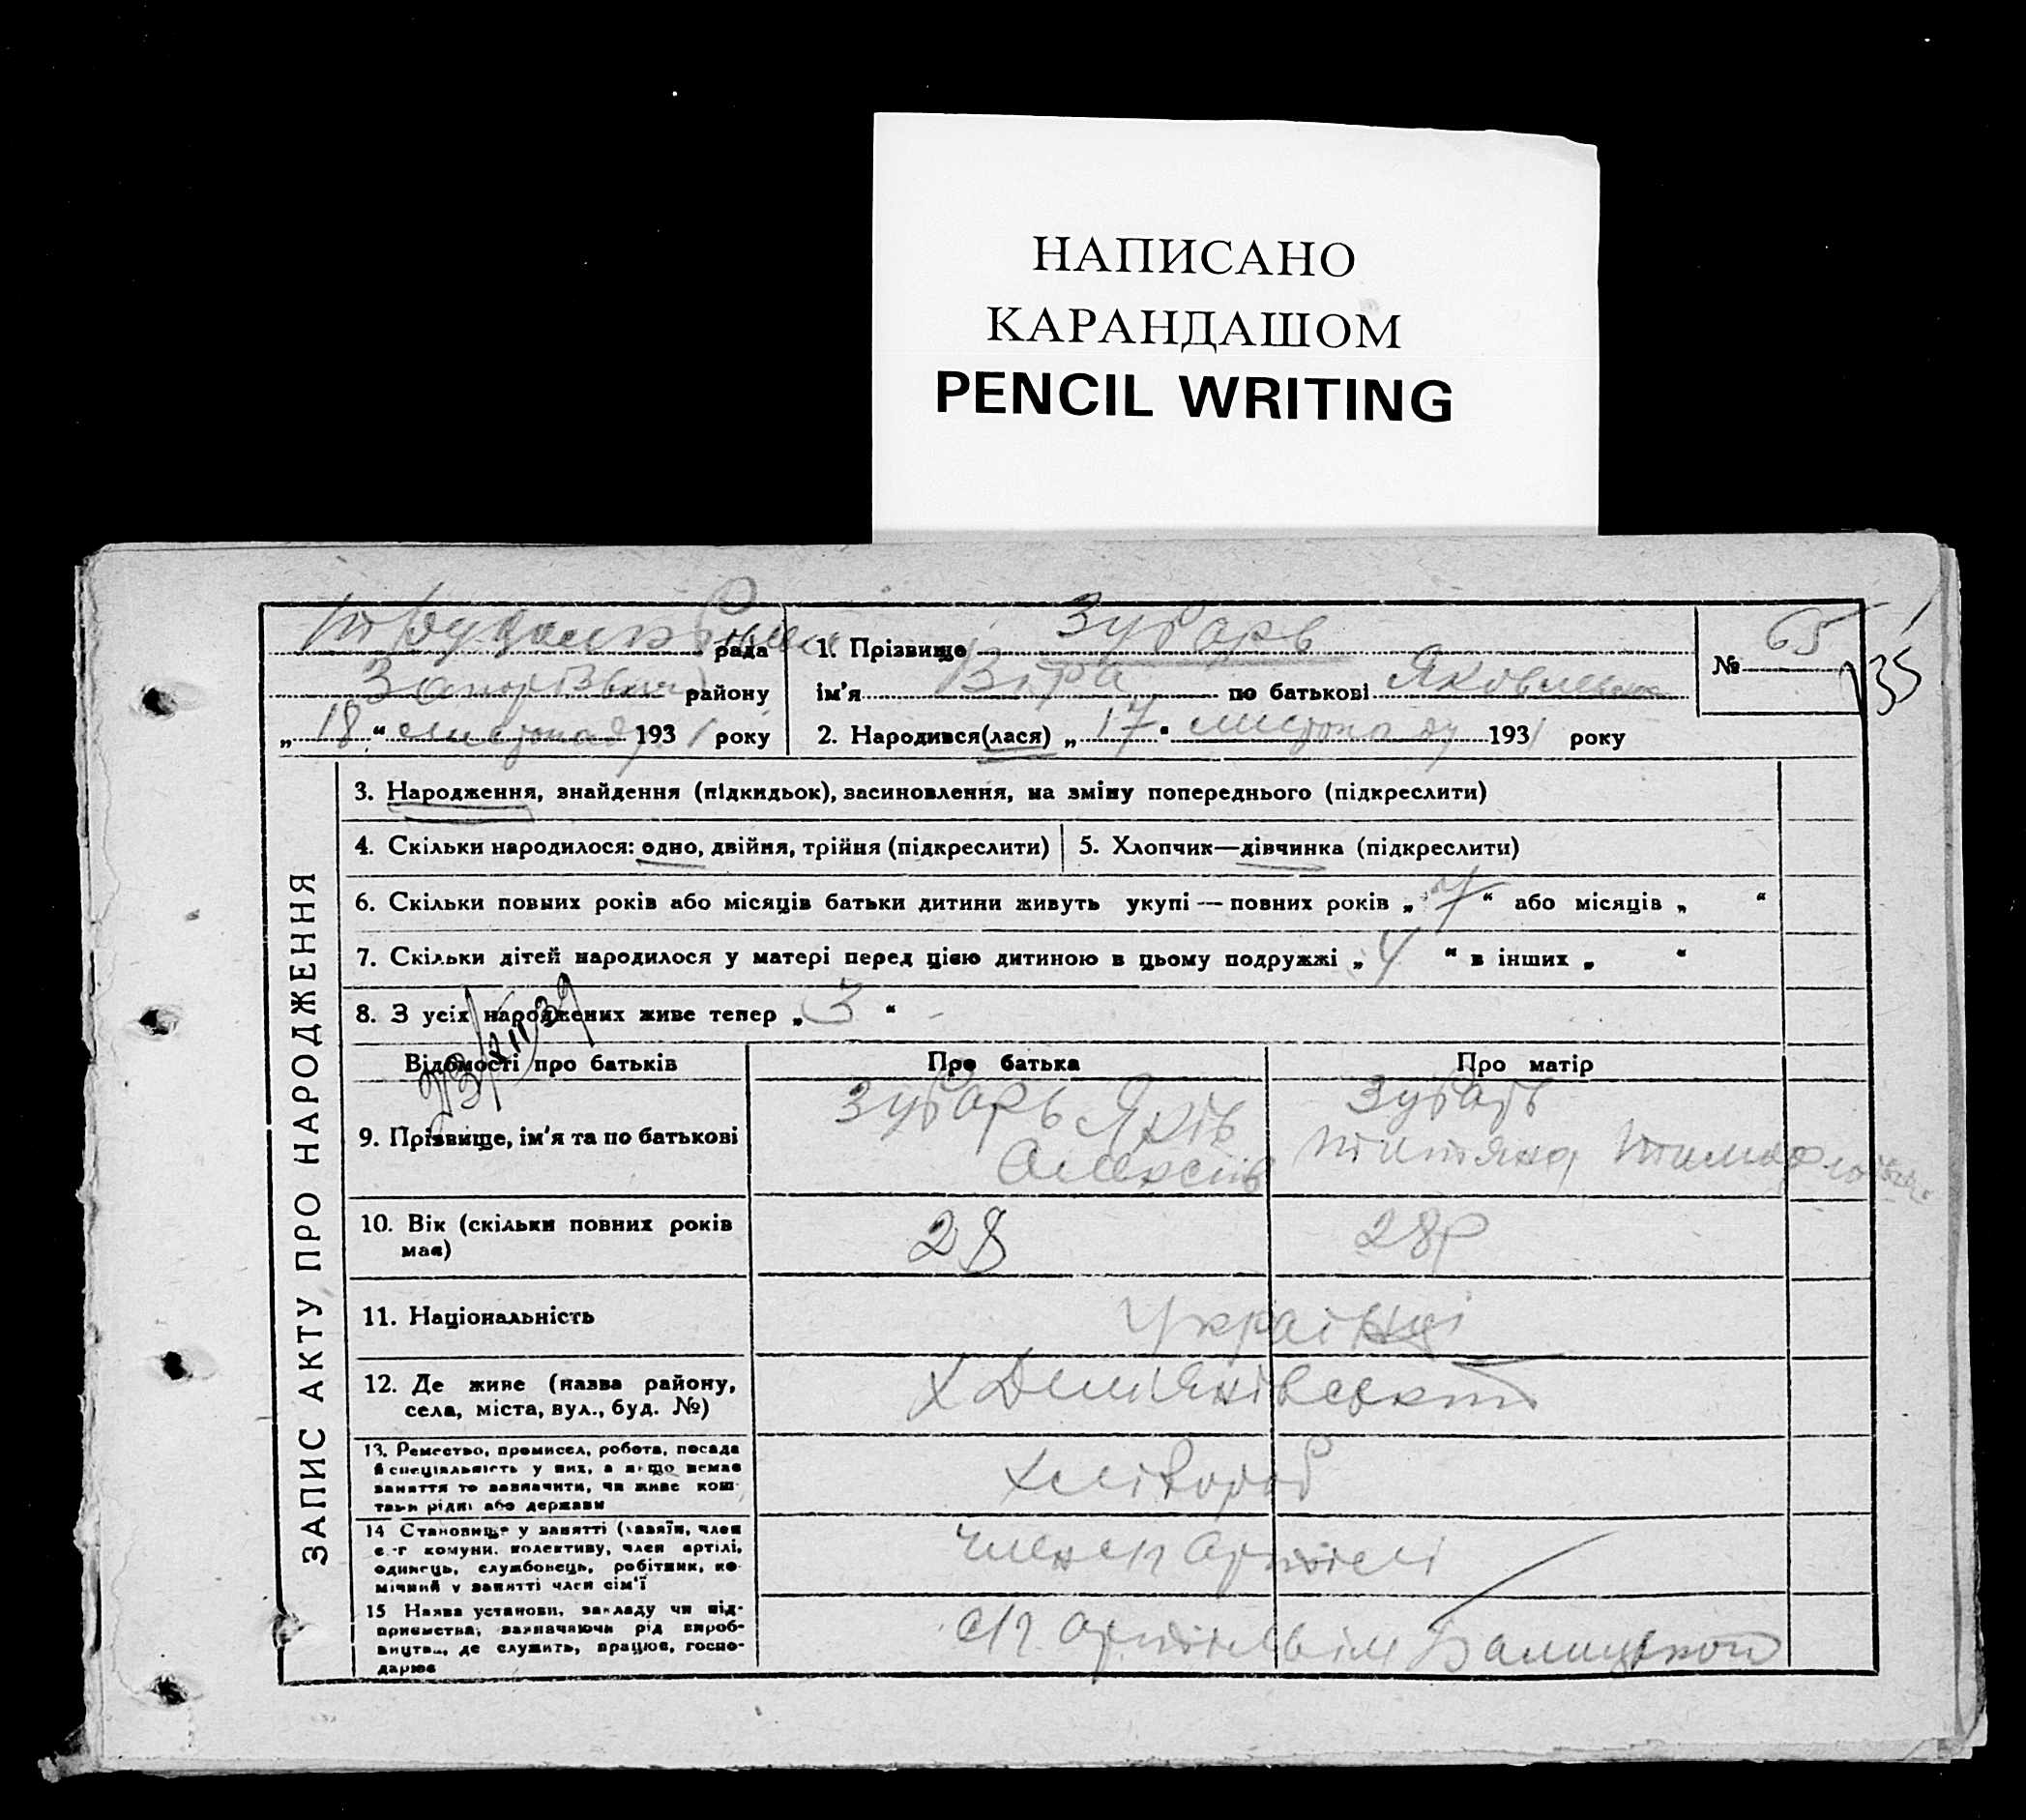 НАПИСАНО
КАРАНДАШОМ
PENCIL WRITING
рада
району
„ 18 “ листопаду 1931 року
1. Прізвище Зубарь
ім'я Віра по батькові Яковлевна
2. Народився(лася) „ 17 “ листопаду 1931 року
№ 65
135
ЗАПИС АКТУ ПРО НАРОДЖЕННЯ
3. Народження, знайдення (підкидьок), засиновлення, на зміну попереднього (підкреслити)
4. Скільки народилося: одно, двійня, трійня (підкреслити)
5. Хлопчик—дівчинка (підкреслити)
6. Скільки повних років або місяців батьки дитини живуть укупі — повних років „ 7 “ або місяців „ “
7. Скільки дітей народилося у матері перед цією дитиною в цьому подружжі „ 4 “ в інших „ “
8. З усіх народжених живе тепер „ 3 “
23/XII 39
Відомості про батьків
Про батька
Про матір
9. Прізвище, ім'я та по батькові
Зубарь Яків
Олексів
Зубарь
10. Вік (скільки повних років
має)
28
28р
11. Національність
Українці
12. Де живе (назва району,
села, міста, вул., буд. №)
х Демянівський
13. Ремество, промисел, робота, посада
й спеціяльність у них, а якщо немає
заняття то зазначити, чи живе кош-
тами рідні або держави
хлібороб
14 Становище у занятті (хазяїн, член
с.-г комуни, колективу, член артілі,
одинець, службовець, робітник, по-
мічний у занятті член сім'ї
член с/г артілі
15 Назва установи, закладу чи під-
приємства, зазначаючи рід вироб-
ництва, де служить, працює, госпо-
дарює
с/г артіль ім Балицького